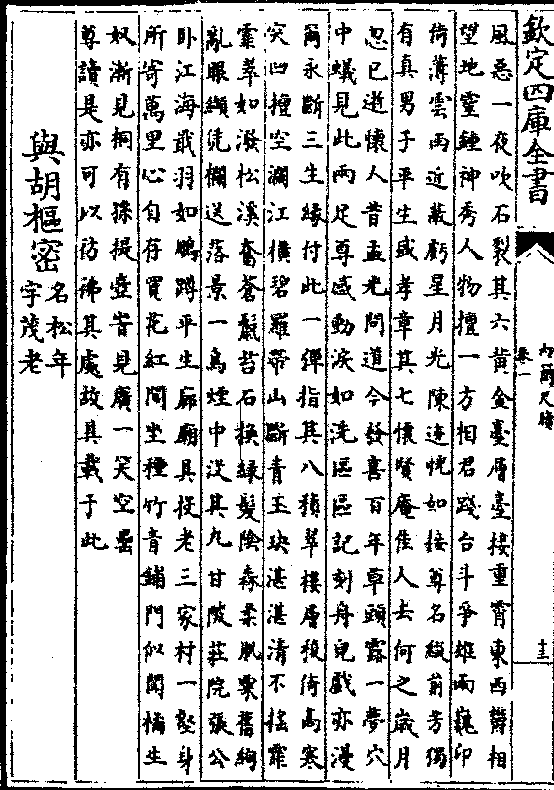 欽定四庫全書
內簡尺牘
卷一
十三
風惡一夜吹石裂其六黄金臺層臺接重霄東西欝相
望地靈鍾神秀人物擅一方相君踐台斗爭雄兩巍卬
倚薄雲雨近蔽虧星月光陳迹恍如接尊名綴前芳獨
有真男子平生盛孝章其七懷賢庵佳人去何之歲月
忽已逝懷人昔孟光問道今發喜百年草頭露一夢穴
中蟻見此兩足尊感動淚如洗區區記刻舟兒戲亦漫
爾永斷三生緣付此一彈指其八積翠樓層稜倚高寒
突凹擅空濶江橫碧羅帶山斷青玉玦湛湛清不搖霏
霏翠如潑松溪奮蒼鬛苔石換緑髮陰森柔肌粟舊絢
亂眼纈凭欄送落景一鳥煙中没其九甘陂莊院張公
卧江海戢羽如鵬蹲平生廊廟具投老三家村一壑身
所寄萬里心自存買花紅閙坐種竹青鋪門似聞橘生
奴漸見桐有孫提壺皆見廣一笑空罍
尊讀是亦可以彷彿其處故具載于此
與胡樞密
名松年
字茂老